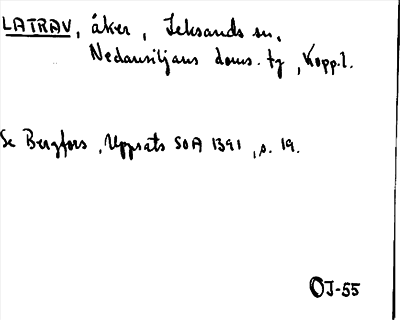 LATRAV, åker, Leksands sn,
Nedansiljans doms. tg, Kopp.l.
Se Bergfors, Uppsats SOA 1391, s. 19.
OJ-55